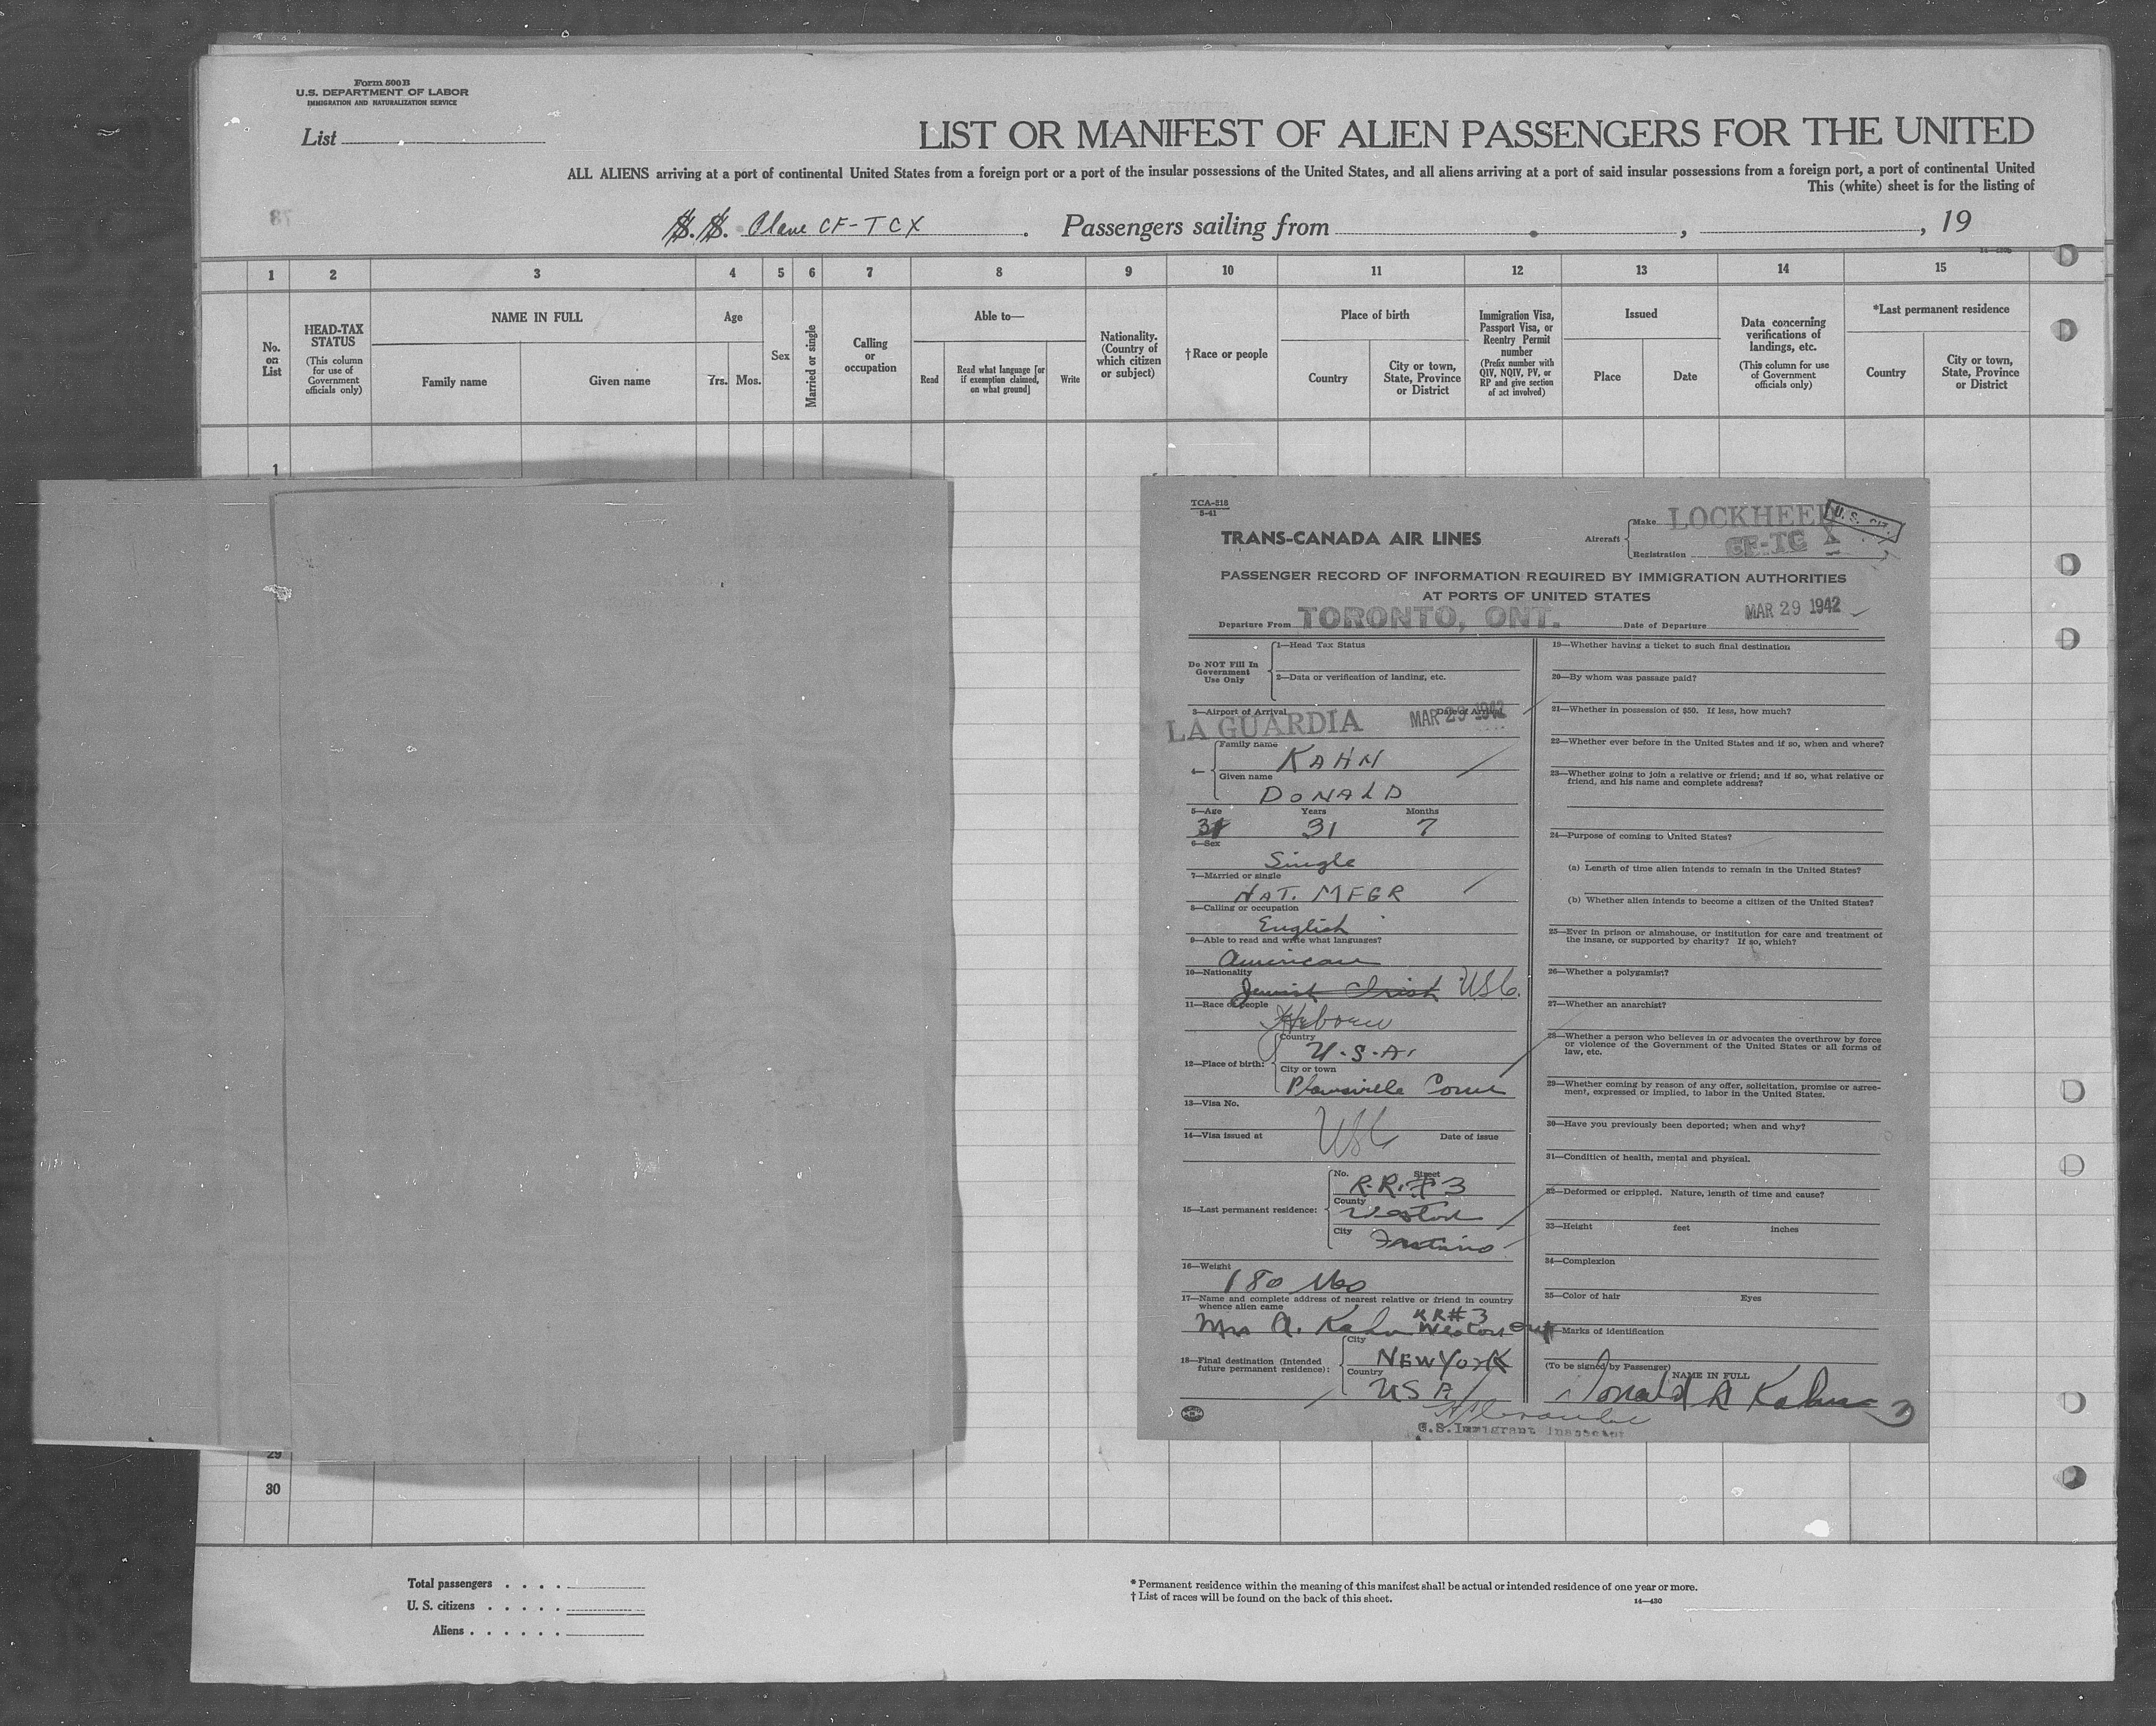 Form 500B
U.S. DEPARTMENT OF LABOR
IMMIGRATION AND NATURALIZATION SERVICE
List
LIST OR MANIFEST OF ALIEN PASSENGERS FOR THE UNITED
ALL ALIENS arriving at a port of continental United States from a foreign port or a port of the insular possessions of the United States, and all aliens arriving at a port of said insular possessions from a foreign port, a port of continental United
This (white) sheet is for the listing of
S.S. Plane CF-TCX . Passengers sailing from , , 19
1 2 3 4 5 6 7 8 9 10 11 12 13 14 15
No. on List
HEAD-TAX STATUS
(This column for use of Government officials only)
NAME IN FULL
Family name
Given name
Age
Yrs. Mos.
Sex
Married or single
Calling or occupation
Able to—
Read
Read what language [or if exemption claimed, on what ground]
Write
Nationality. (Country of which citizen or subject)
†Race or people
Place of birth
Country
City or town, State, Province or District
Immigration Visa, Passport Visa, or Reentry Permit number
(Prefix number with QIV, NQIV, PV, or RP and give section of act involved)
Issued
Place
Date
Data concerning verifications of landings, etc.
(This column for use of Government officials only)
*Last permanent residence
Country
City or town, State, Province or District
1
TCA-218
5-41
TRANS-CANADA AIR LINES
Aircraft
Make LOCKHEED
Registration CF-TC X
U. S. CIT.
PASSENGER RECORD OF INFORMATION REQUIRED BY IMMIGRATION AUTHORITIES
AT PORTS OF UNITED STATES
Departure From TORONTO, ONT. Date of Departure MAR 29 1942
Do NOT Fill In Government Use Only
1—Head Tax Status
2—Data or verification of landing, etc.
3—Airport of Arrival Date of Arrival
LA GUARDIA MAR 29 1942
4—
Family name KAHN
Given name
DONALD
5—Age Years Months
31 31 7
6—Sex
Single
7—Married or single
NAT. MFGR
8—Calling or occupation
English
9—Able to read and write what languages?
American
10—Nationality
Jewish Irish USC.
11—Race or people
Hebrew
12—Place of birth:
Country
U.S.A.
City or town
Conn
13—Visa No.
USC
14—Visa issued at Date of issue
15—Last permanent residence:
No. Street
R.R. # 3
County
Weston
City
16—Weight
180 lbs
17—Name and complete address of nearest relative or friend in country
whence alien came
RR# 3
Mrs A. Kahn Weston Ont
18—Final destination (Intended future permanent residence):
City
NEW YORK
Country
USA
19—Whether having a ticket to such final destination
20—By whom was passage paid?
21—Whether in possession of $50. If less, how much?
22—Whether ever before in the United States and if so, when and where?
23—Whether going to join a relative or friend; and if so, what relative or
friend, and his name and complete address?
24—Purpose of coming to United States?
(a) Length of time alien intends to remain in the United States?
(b) Whether alien intends to become a citizen of the United States?
25—Ever in prison or almshouse, or institution for care and treatment of
the insane, or supported by charity? If so, which?
26—Whether a polygamist?
27—Whether an anarchist?
28—Whether a person who believes in or advocates the overthrow by force
or violence of the Government of the United States or all forms of
law, etc.
29—Whether coming by reason of any offer, solicitation, promise or agree-
ment, expressed or implied, to labor in the United States.
30—Have you previously been deported; when and why?
31—Condition of health, mental and physical.
32—Deformed or crippled. Nature, length of time and cause?
33—Height feet inches
34—Complexion
35—Color of hair Eyes
Marks of identification
(To be signed by Passenger) NAME IN FULL
Donald A Kahn 3
U.S. Immigrant Inspector
29
30
Total passengers
U. S. citizens
Aliens
* Permanent residence within the meaning of this manifest shall be actual or intended residence of one year or more.
† List of races will be found on the back of this sheet.
14—430